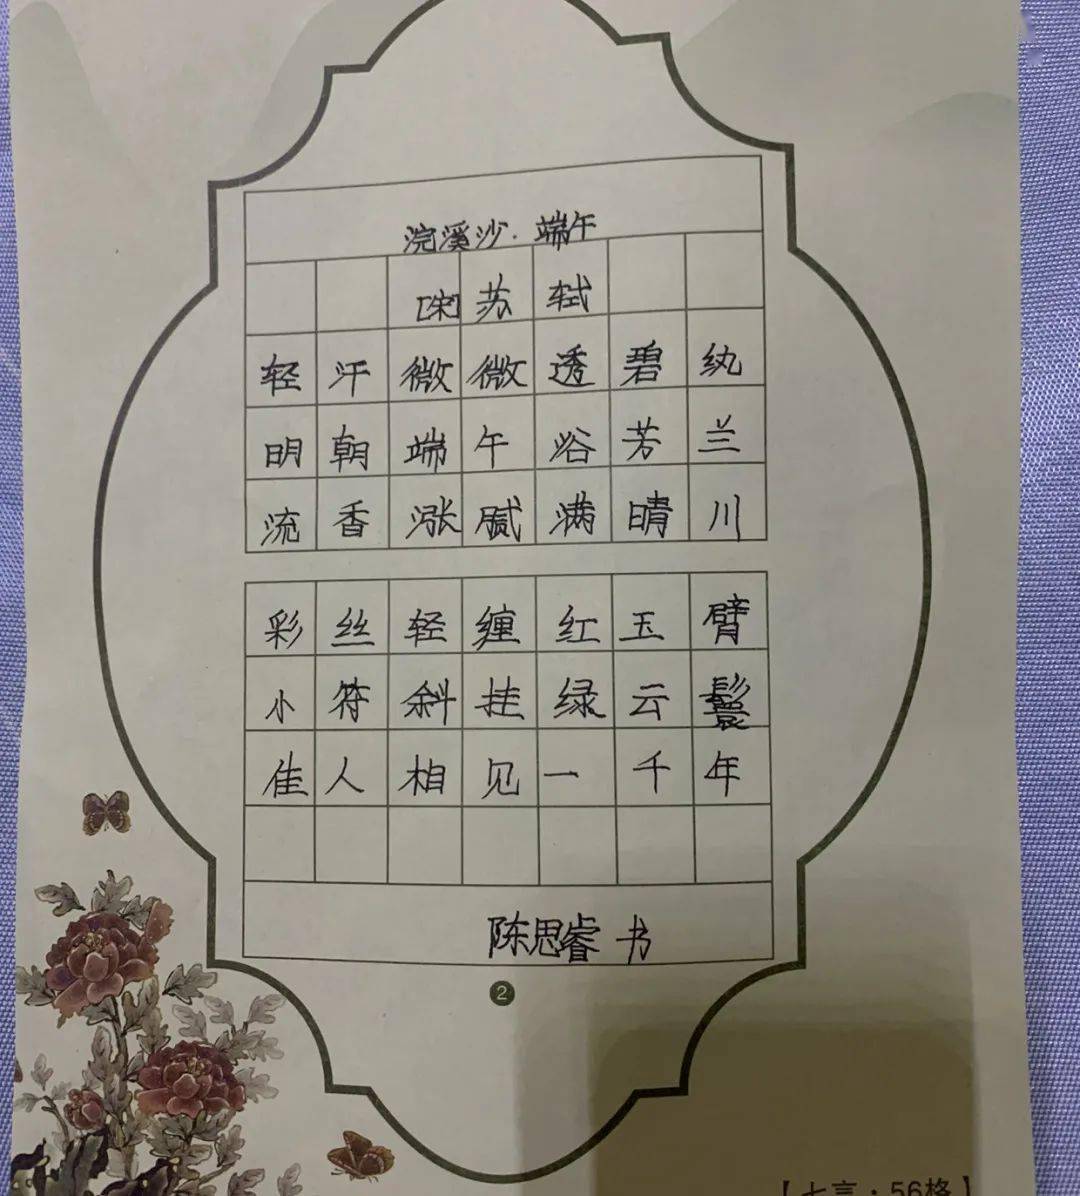 浣溪沙·端午
[宋]苏轼
轻汗微微透碧纨
明朝端午浴芳兰
流香涨腻满晴川
彩丝轻缠红玉臂
小符斜挂绿云鬟
佳人相见一千年
陈思睿 书
2
【七言·56格】